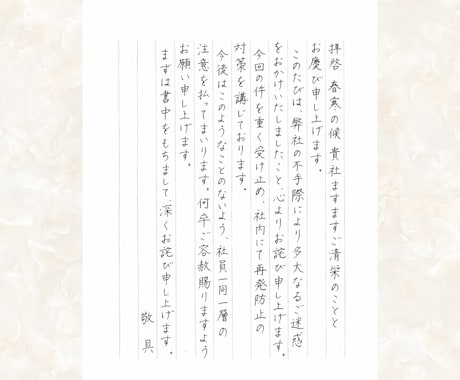 拝啓 春寒の候 貴社ますますご清栄のことと
お慶び申し上げます。
このたびは、弊社の不手際により多大なるご迷惑
をおかけいたしましたこと、心よりお詫び申し上げます。
今回の件を重く受け止め、社内にて再発防止の
対策を講じております。
今後はこのようなことのないよう、社員一同一層の
注意を払ってまいります。何卒ご容赦賜りますよう
お願い申し上げます。
まずは書中をもちまして、深くお詫び申し上げます。
敬具